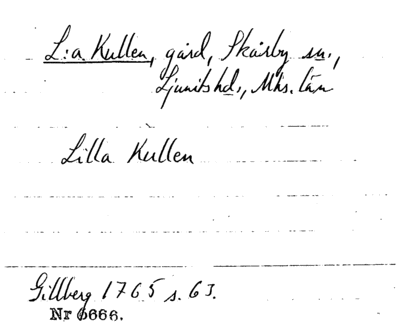 L:a Kullen, gård, Skårby sn.,
Ljunits hd., Mhs. län
Lilla Kullen
Gillberg 1765 s. 63.
Nr 6666.